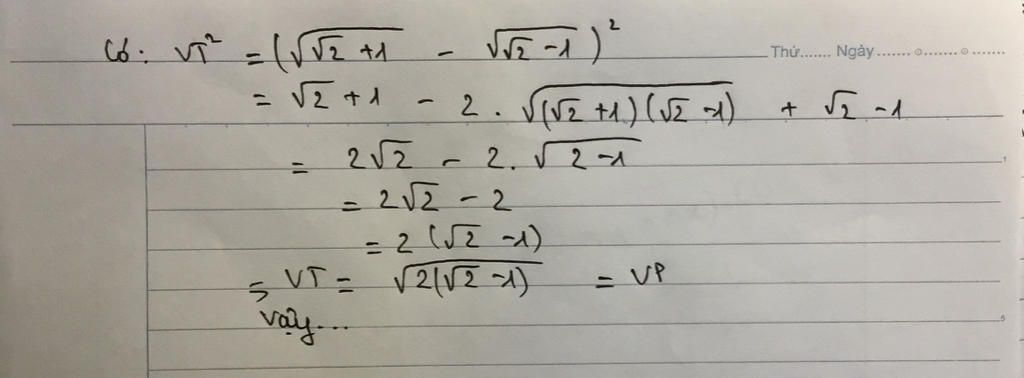 Có: VT² = (√(√2 + 1) - √(√2 - 1))²
Thứ....... Ngày ....... ....... .......
= √2 + 1 - 2 . √((√2 + 1)(√2 - 1)) + √2 - 1
= 2√2 - 2. √(2 - 1)
= 2√2 - 2
= 2 (√2 - 1)
=> VT = √(2(√2 - 1)) = VP
Vậy...